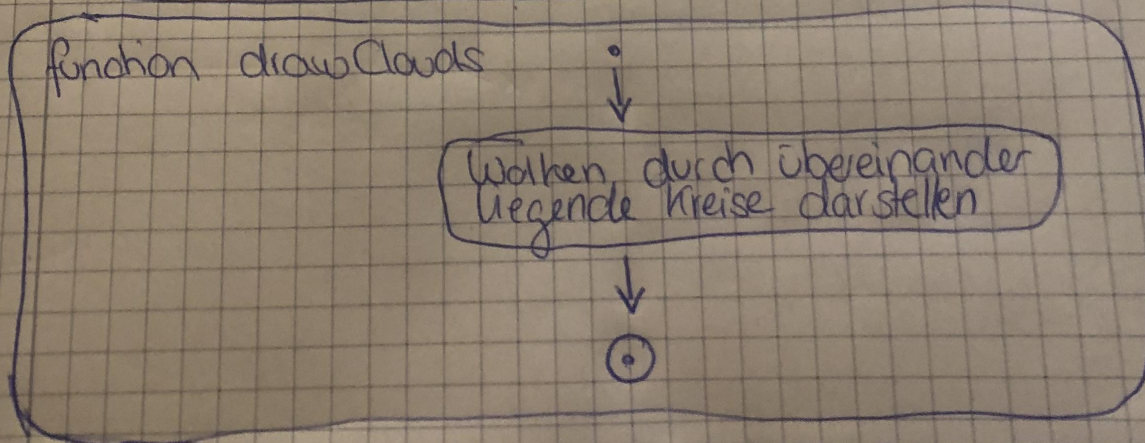 function drawClouds
Wolken durch übereinander
liegende Kreise darstellen